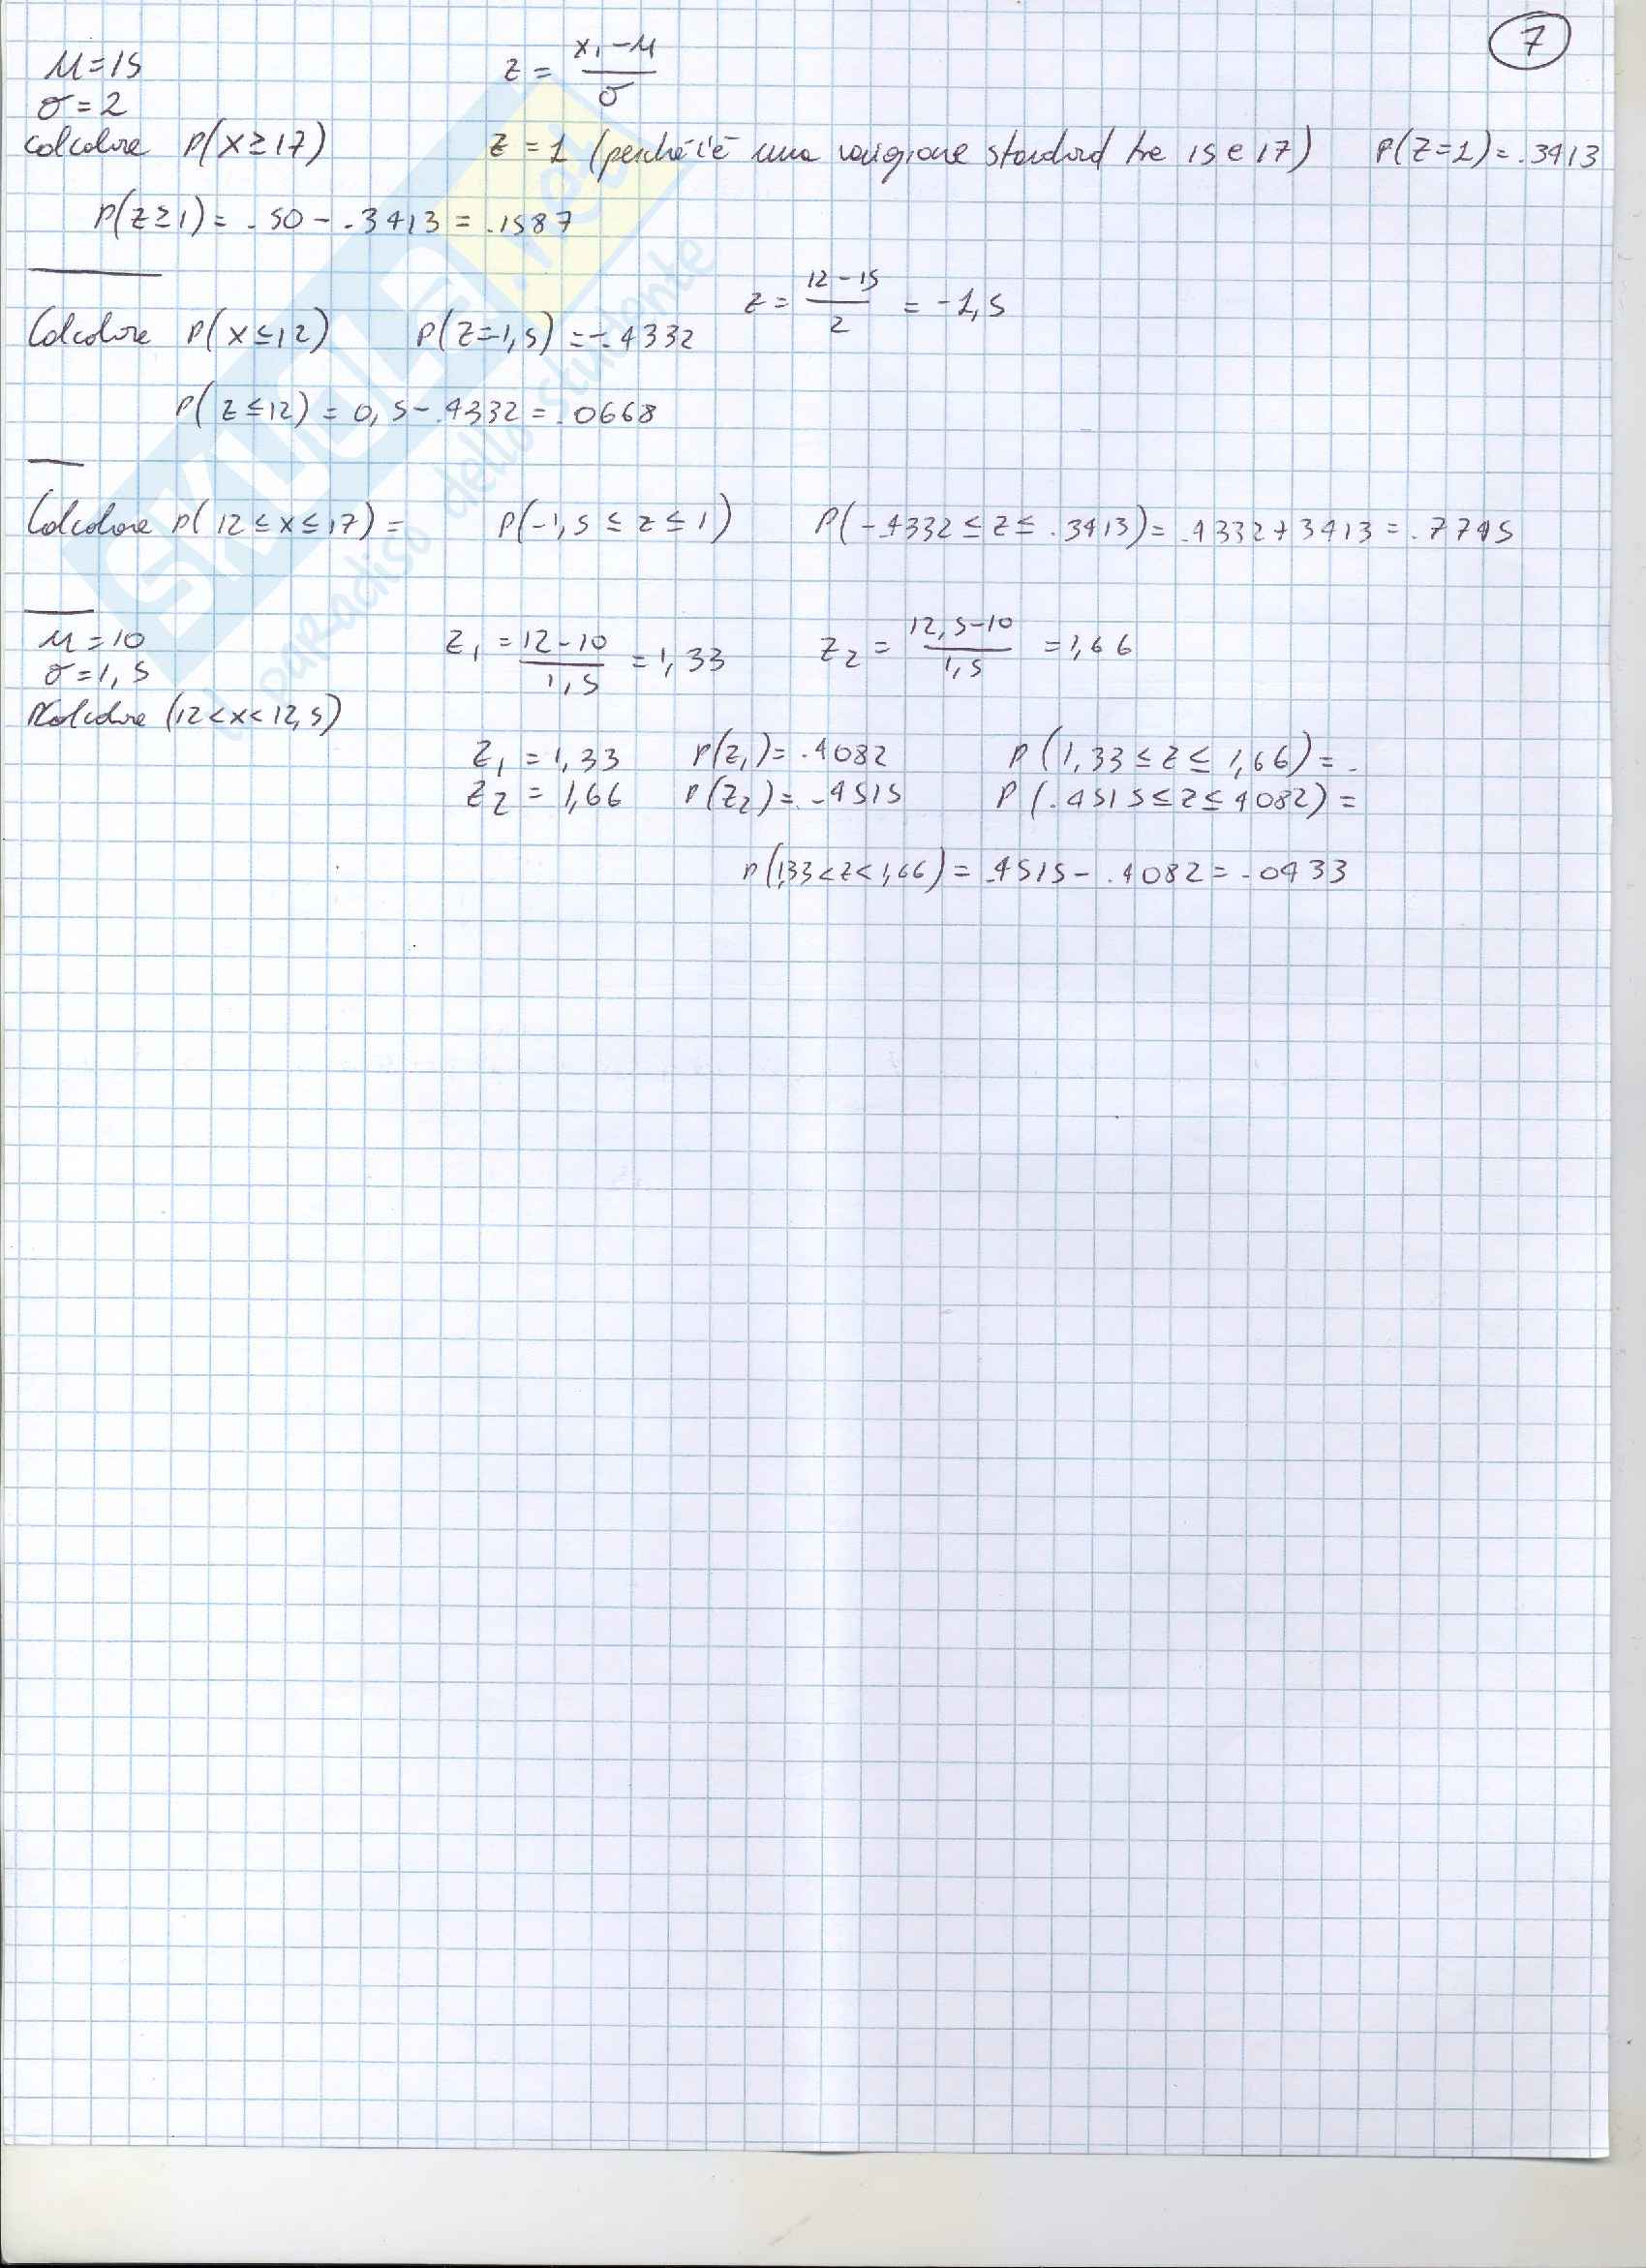 7
μ=15
σ=2
z = x₁-μ / σ
Calcolare P(x≥17) z=1 (perché c'è una variazione standard tra 15 e 17) P(z=1)=.3413
P(z≥1)= .50 - .3413 = .1587
z = 12-15 / 2 = -1,5
Calcolare P(x≤12) P(z=1,5) =-.4332
P(z≤12) = 0,5-.4332 = .0668
Calcolare P(12≤x≤17) = P(-1,5≤z≤1) P(-.4332≤z≤.3413)=.4332+3413=.7745
μ=10
σ=1,5
z₁ = 12-10 / 1,5 = 1,33 z₂ = 12,5-10 / 1,5 = 1,66
Calcolare (12<x<12,5)
z₁ = 1,33 P(z₁)= .4082 P(1,33≤z≤1,66)=.
z₂ = 1,66 P(z₂)= .4515 P(.4515≤z≤4082)=
P(1,33<z<1,66) = .4515- .4082 = .0433
SKUOLA.net
il paradiso dello studente